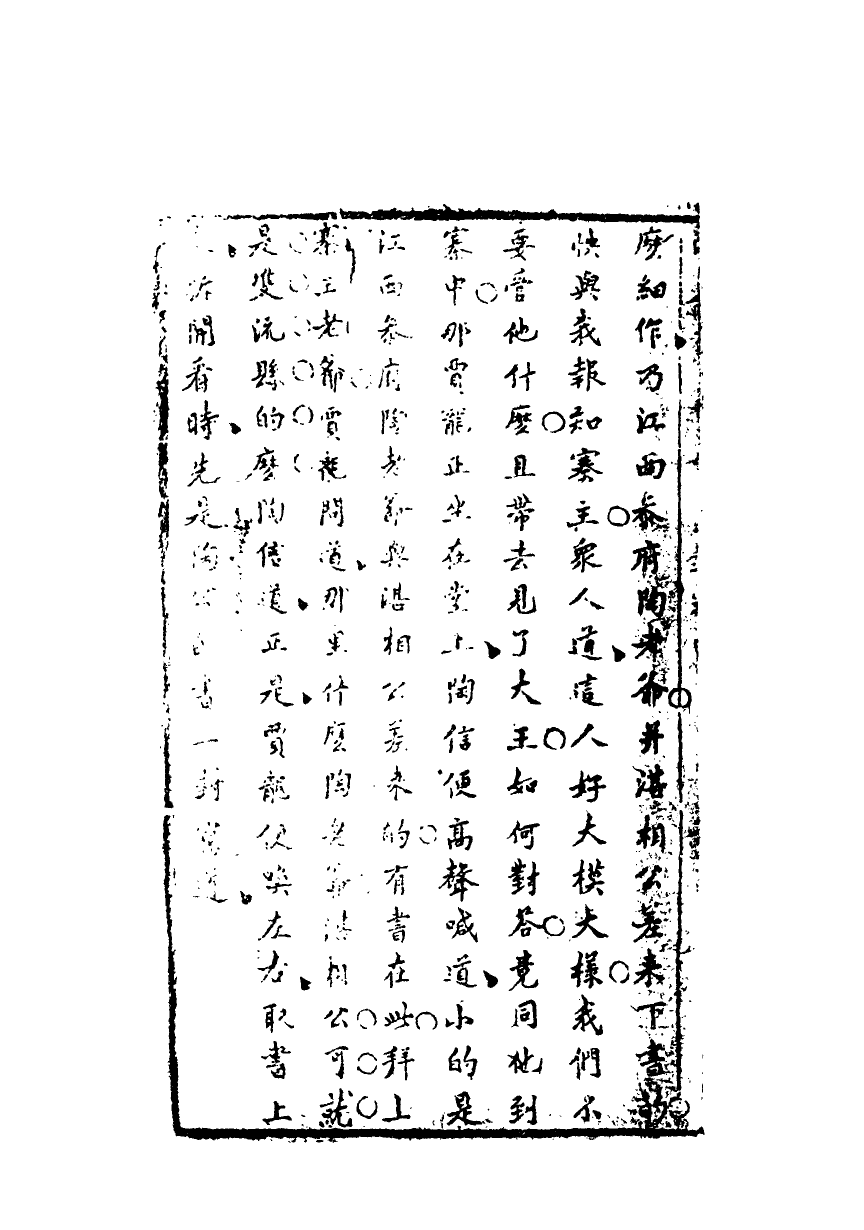 麽細作乃江西叅府陶老爺并湛相公差来下書的
快與我報知寨主衆人道這人好大模大樣我們不
要管他什麽且帶去見了大王如何對答竟同他到
寨中那賈龍正坐在堂上陶信便高聲喊道小的是
江西叅府陶老爺與湛相公差来的有書在此拜上
寨主老爺賈龍問道那里什麽陶老爺湛相公可就
是雙流縣的麽陶信道正是賈龍便喚左右取書上
来拆開看時先是陶公的書一封寫道